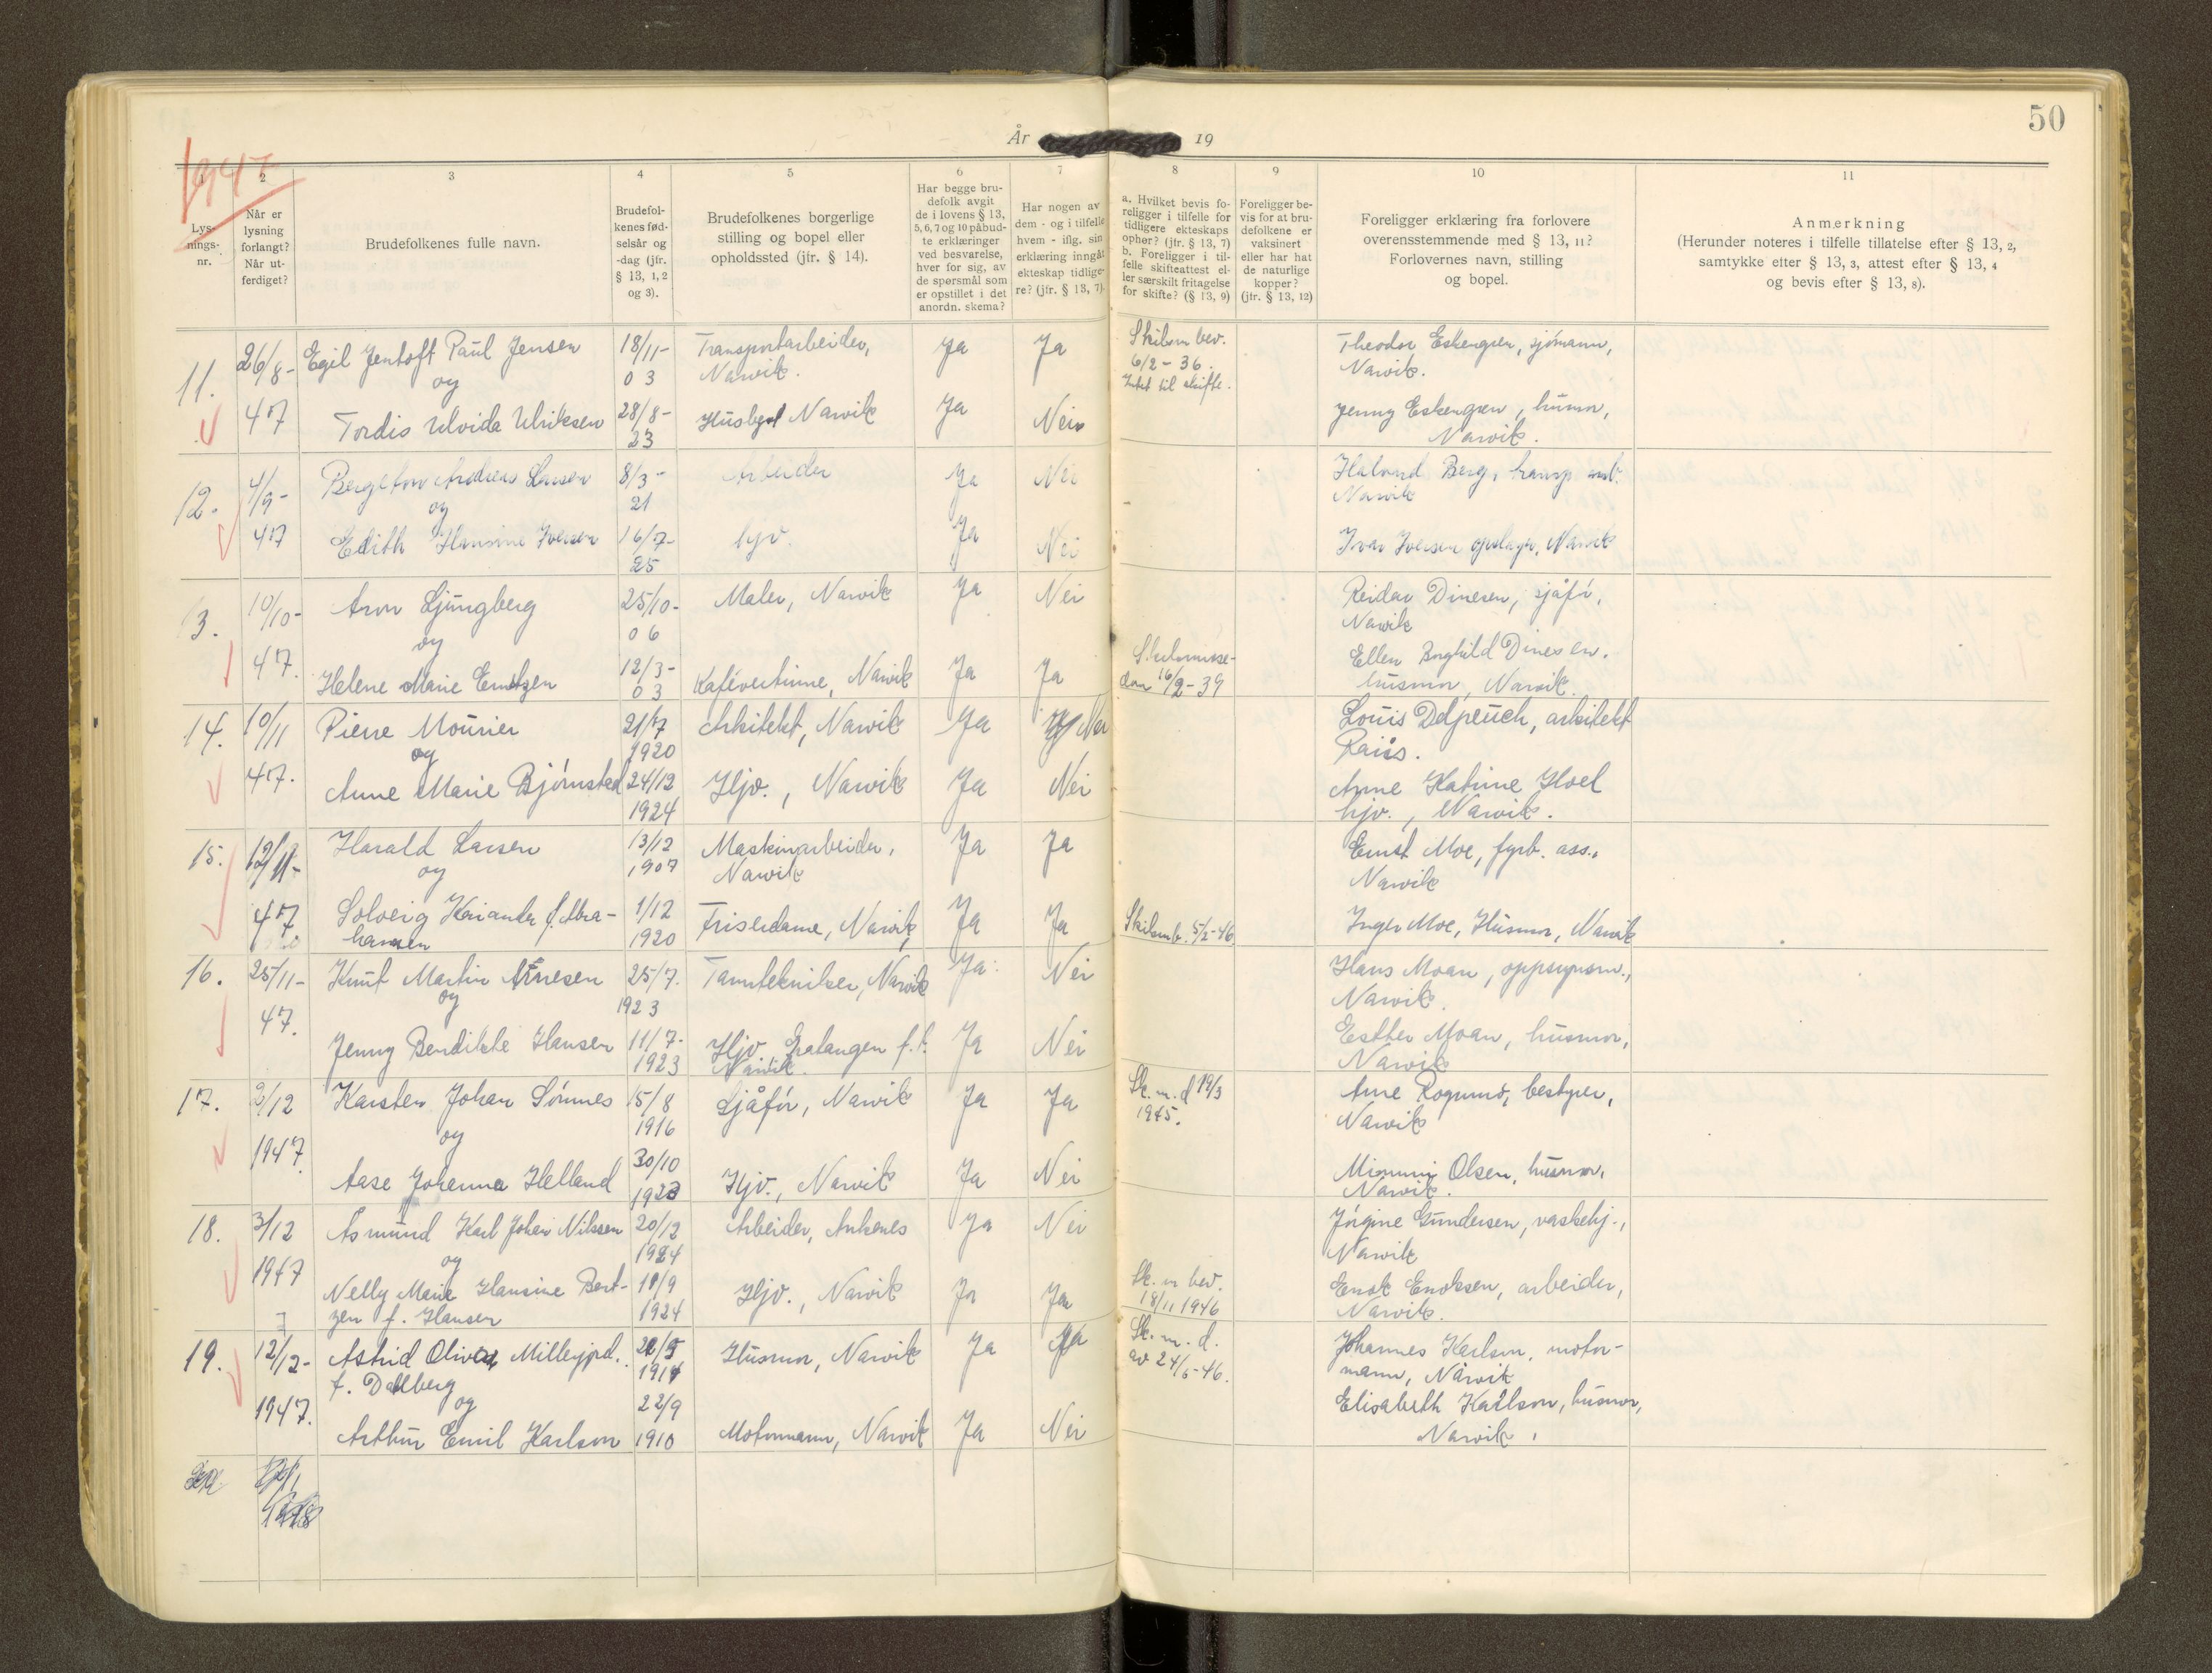 50
År 19
1947
1
2
3
4
5
6
7
8
9
10
11
Lys-
nings-
nr.
Når er
lysning
forlangt?
Når ut-
ferdiget?
Brudefolkenes fulle navn.
Brudefol-
kenes fød-
selsår og
-dag (jfr.
§ 13, 1, 2
og 3).
Brudefolkenes borgerlige
stilling og bopel eller
opholdssted (jfr. § 14).
Har begge bru-
defolk avgit
de i lovens § 13,
5, 6, 7 og 10 påbud-
te erklæringer
ved besvarelse,
hver for sig, av
de spørsmål som
er opstillet i det
anordn. skema?
Har nogen av
dem - og i tilfelle
hvem - iflg. sin
erklæring inngåt
ekteskap tidlige-
re? (jfr. § 13, 7).
a. Hvilket bevis fo-
religger i tilfelle for
tidligere ekteskaps
ophør? (jfr. § 13, 7)
b. Foreligger i til-
felle skifteattest el-
ler særskilt fritagelse
for skifte? (§ 13, 9)
Foreligger be-
vis for at bru-
defolkene er
vaksinert
eller har hat
de naturlige
kopper?
(jfr. § 13, 12)
Foreligger erklæring fra forlovere
overensstemmende med § 13, 11?
Forlovernes navn, stilling
og bopel.
Anmerkning
(Herunder noteres i tilfelle tillatelse efter § 13, 2,
samtykke efter § 13, 3, attest efter § 13, 4
og bevis efter § 13, 8).
11. 26/8- Egil Jentoft Paul Jensen 18/11- Transportarbeider, Ja Ja Skilsm bev. Theodor Eskengren, sjömann,
og 03 Narvik. 6/2-36. Narvik.
Intet til skifte.
47 Tordis Ulvida Ulriksen 28/8- Husbest Narvik Ja Nei Jenny Eskengren, husmor,
23 Narvik.
12. 4/9- Bergeton Andreas Larsen 8/3- Arbeider Ja Nei Halvard Berg, transp arb.
og 21 Narvik
47 Edith Hansine Iversen 16/7- hjv. Ja Nei Ivar Iversen, Narvik
25
13. 10/10- Aron Ljungberg 25/10- Maler, Narvik Ja Nei Reidar Dinesen, sjåfö,
og 06 Narvik
47. Helene Marie Erntzen 12/3- Kafévertinne, Narvik Ja Ja Skilsmisse- Ellen Borghild Dinesen.
03 dom 16/2-39 husmor, Narvik.
14. 10/11 Pierre Mourier 21/7 Arkitekt, Narvik Ja Nei Louis Delpeuch, arkitekt
og 1920 Paris.
47. Anne Marie Björnstad 24/12 Hjv., Narvik Ja Nei Anne Katrine Hoel
1924 hjv., Narvik.
15. 12/11- Harald Larsen 13/12 Maskinarbeider, Ja Ja Ernst Moe, fyrb. ass.,
og 1907 Narvik Narvik
47 Solveig Kariander f. Abra- 1/12 Friserdame, Narvik, Ja Ja Skilsmb. 5/2-46 Inger Moe, Husmor, Narvik
hamsen 1920
16. 25/11- Knut Martin Arnesen 25/7. Tanntekniker, Narvik Ja Nei Hans Moan, oppsynsm.,
og 1923 Narvik.
47. Jenny Bendikte Hansen 11/7- Hjv. Gratangen f.t. Ja Nei Esther Moan, husmor,
1923 Narvik. Narvik
17. 2/12 Karsten Johan Sömnes 15/8 Sjåför, Narvik Ja Ja Sk. m. d 19/3 Arne Rognmo, bestyrer,
og 1916 1945. Narvik
1947. Aase Johanna Helland 30/10 Hjv., Narvik Ja Nei Mimmi Olsen, husmor,
1923 Narvik.
18. 3/12 Åsmund Karl Johan Nilssen 20/12 Arbeider, Ankenes Ja Nei Jörgine Gundersen, vaskehj.,
og 1924 Narvik
1947 Nelly Marie Hansine Bert- 19/9 Hjv., Narvik Ja Ja Sk. m bev. Enok Enoksen, arbeider,
zen f. Hansen 1924 18/11 1946 Narvik.
19. 12/12- Astrid Oliva Millerjord. 1914 Husmor, Narvik Ja Ja Sk. m. d. Johannes Karlson, motor-
f. Dahlberg av 24/6-46. mann, Narvik
og
1947. Arthur Emil Karlson 22/9 Motormann, Narvik Ja Nei Elisabeth Karlson, husmor,
1910 Narvik.